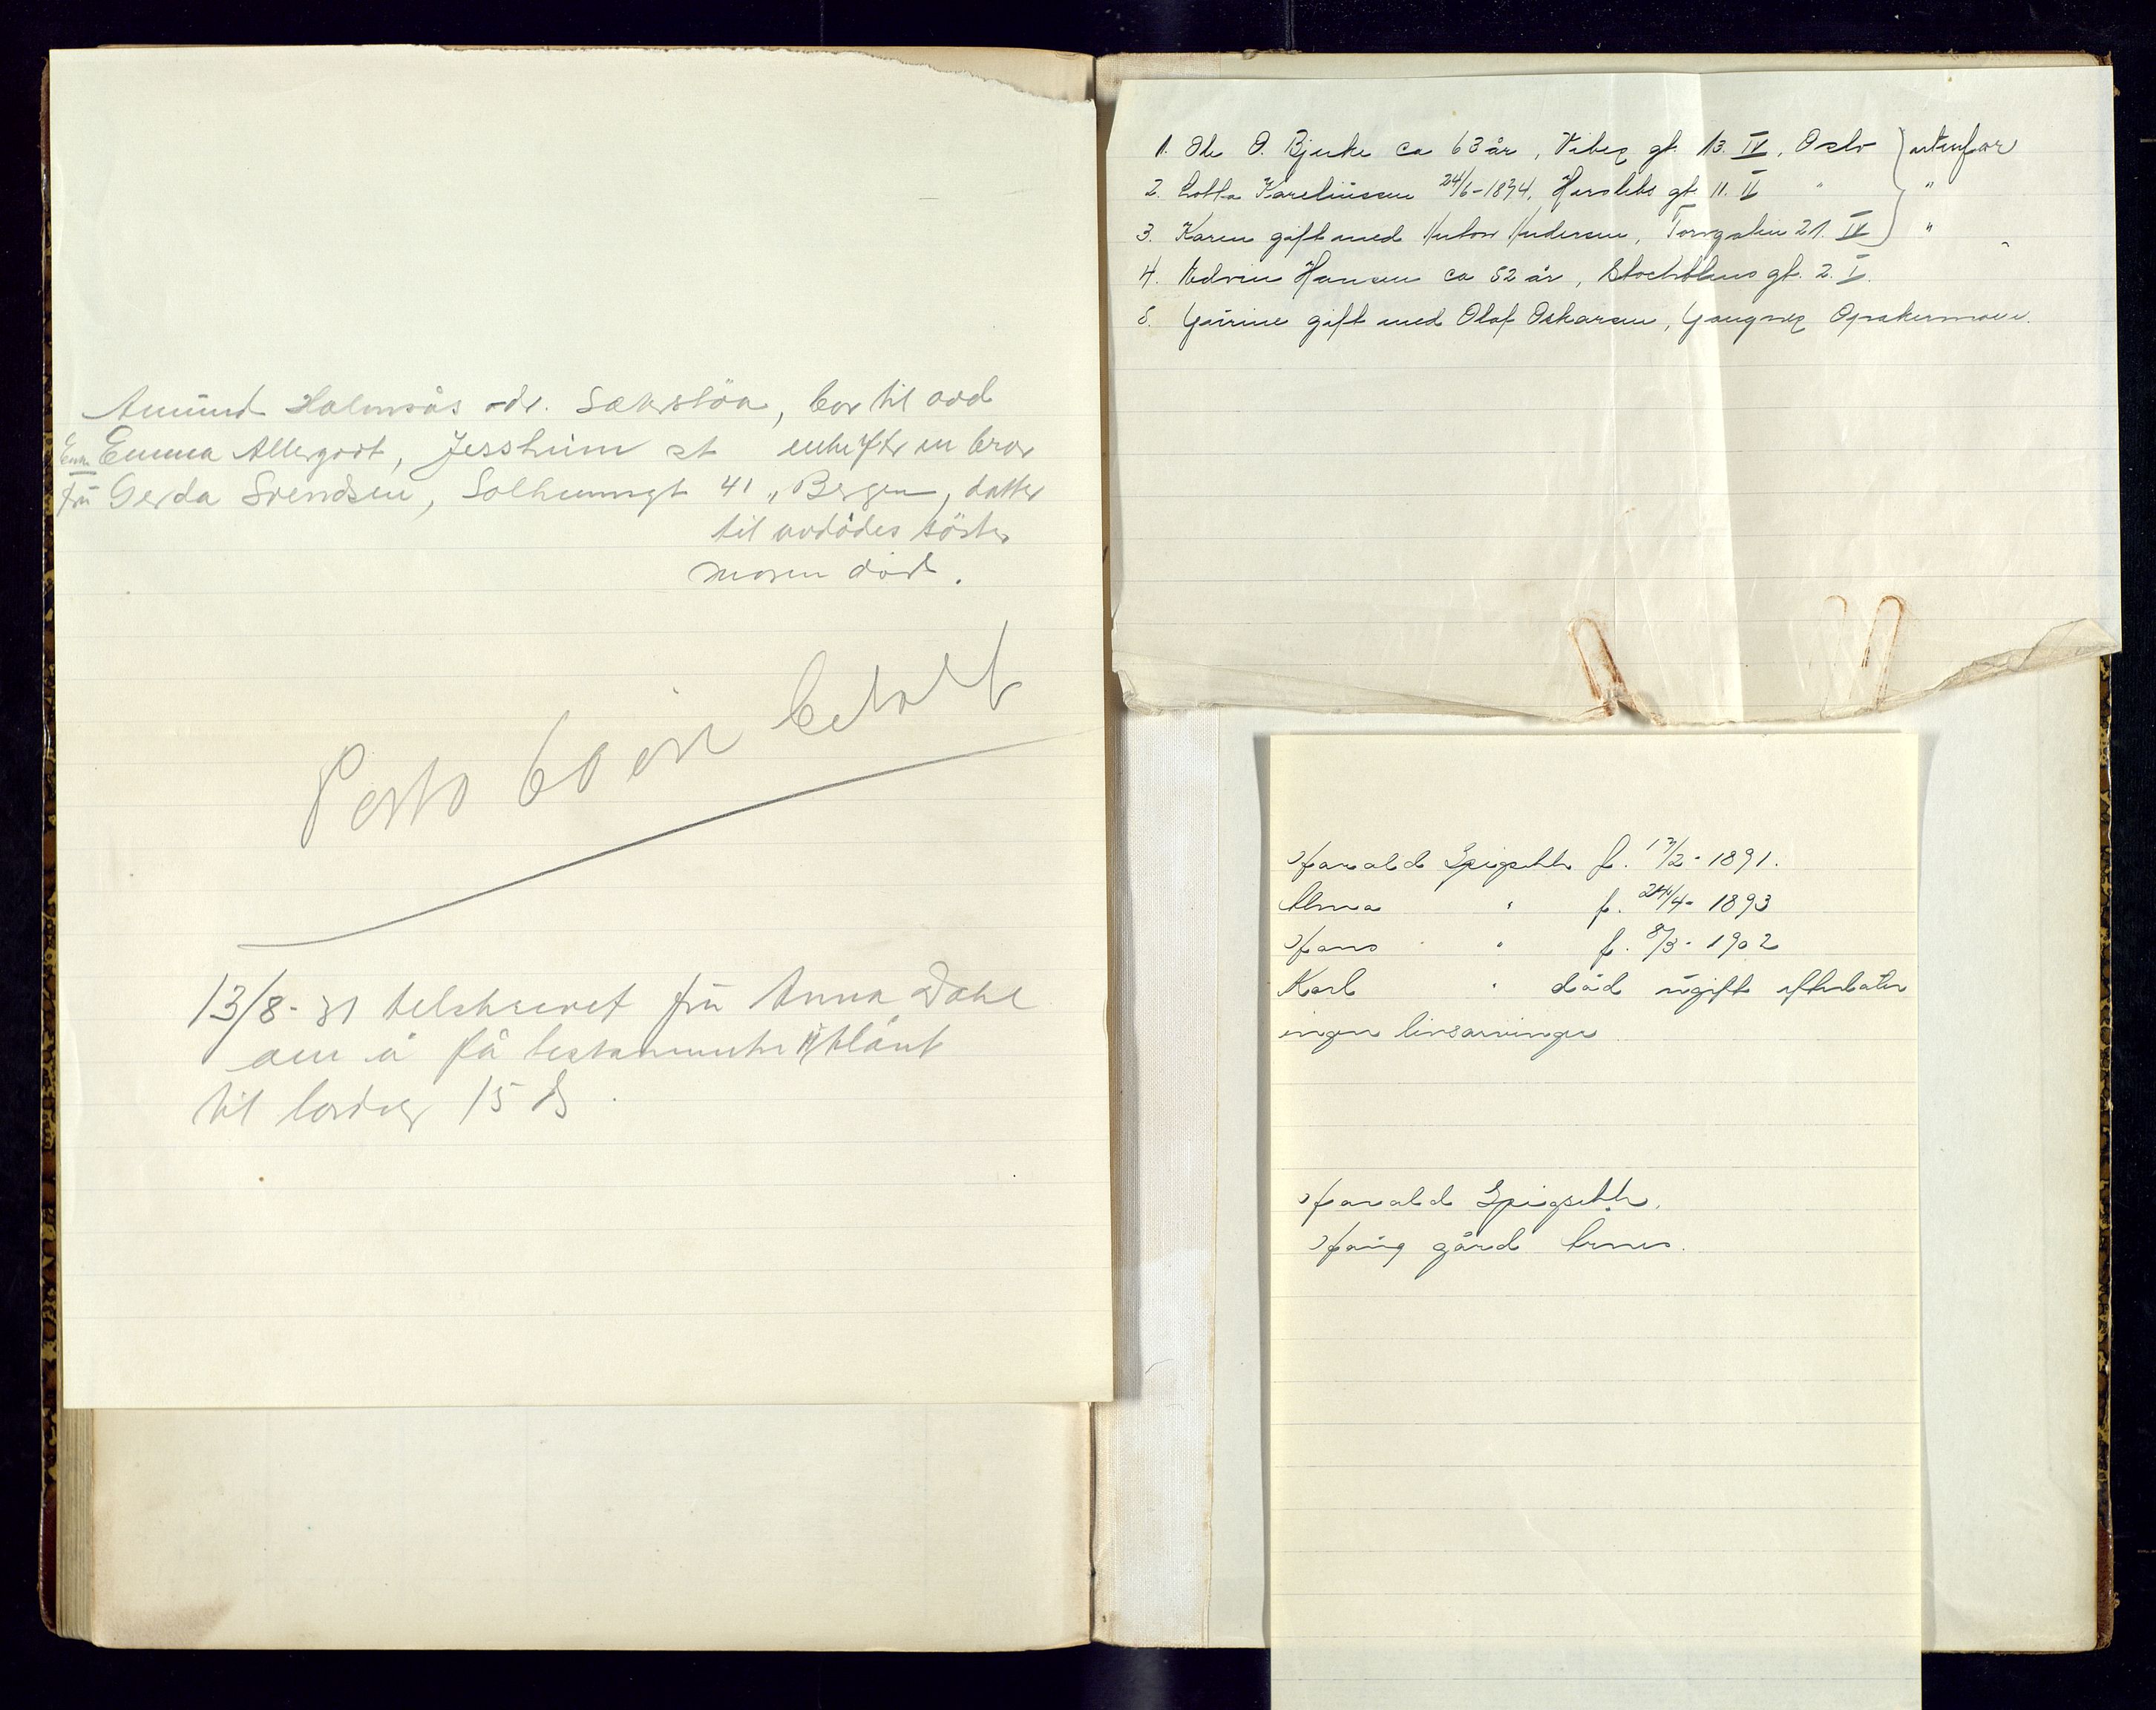 Amund Holmsås adr. Sæterstøa, bor til avd
Enke Emma Allergodt, Jessheim st enke efter en bror
Fru Gerda Svendsen, Solheimsgt 41, Bergen, datter
til avdødes søster
moren död.
Porto 60 øre betalt
13/8-31 tilskrevet fru Anna Dahl
om å få testamente tilsånt
til lørdag 15 ds
1. Ole O. Bjerke ca 63 år, Vibes gt. 13. IV, Oslo
2. Lotta Karelinssen 24/6-1874, Herslebs gt. 11. II "
3. Karen gift med Anton Andersen, Torvgaten 21. IV "
4. Edvin Hansen ca 52 år, Stockfleths gt. 2. I.
5. Gurine gift med Olaf Oskarsen, Opakermoen.
Harald Spigseth f. 17/2-1891.
Alma " f. 24/4-1893
Hans " f. 8/3-1902
Karl " død ugift efterlater
ingen livsarvinger
Harald Spigseth.
Haug gård Årnes.